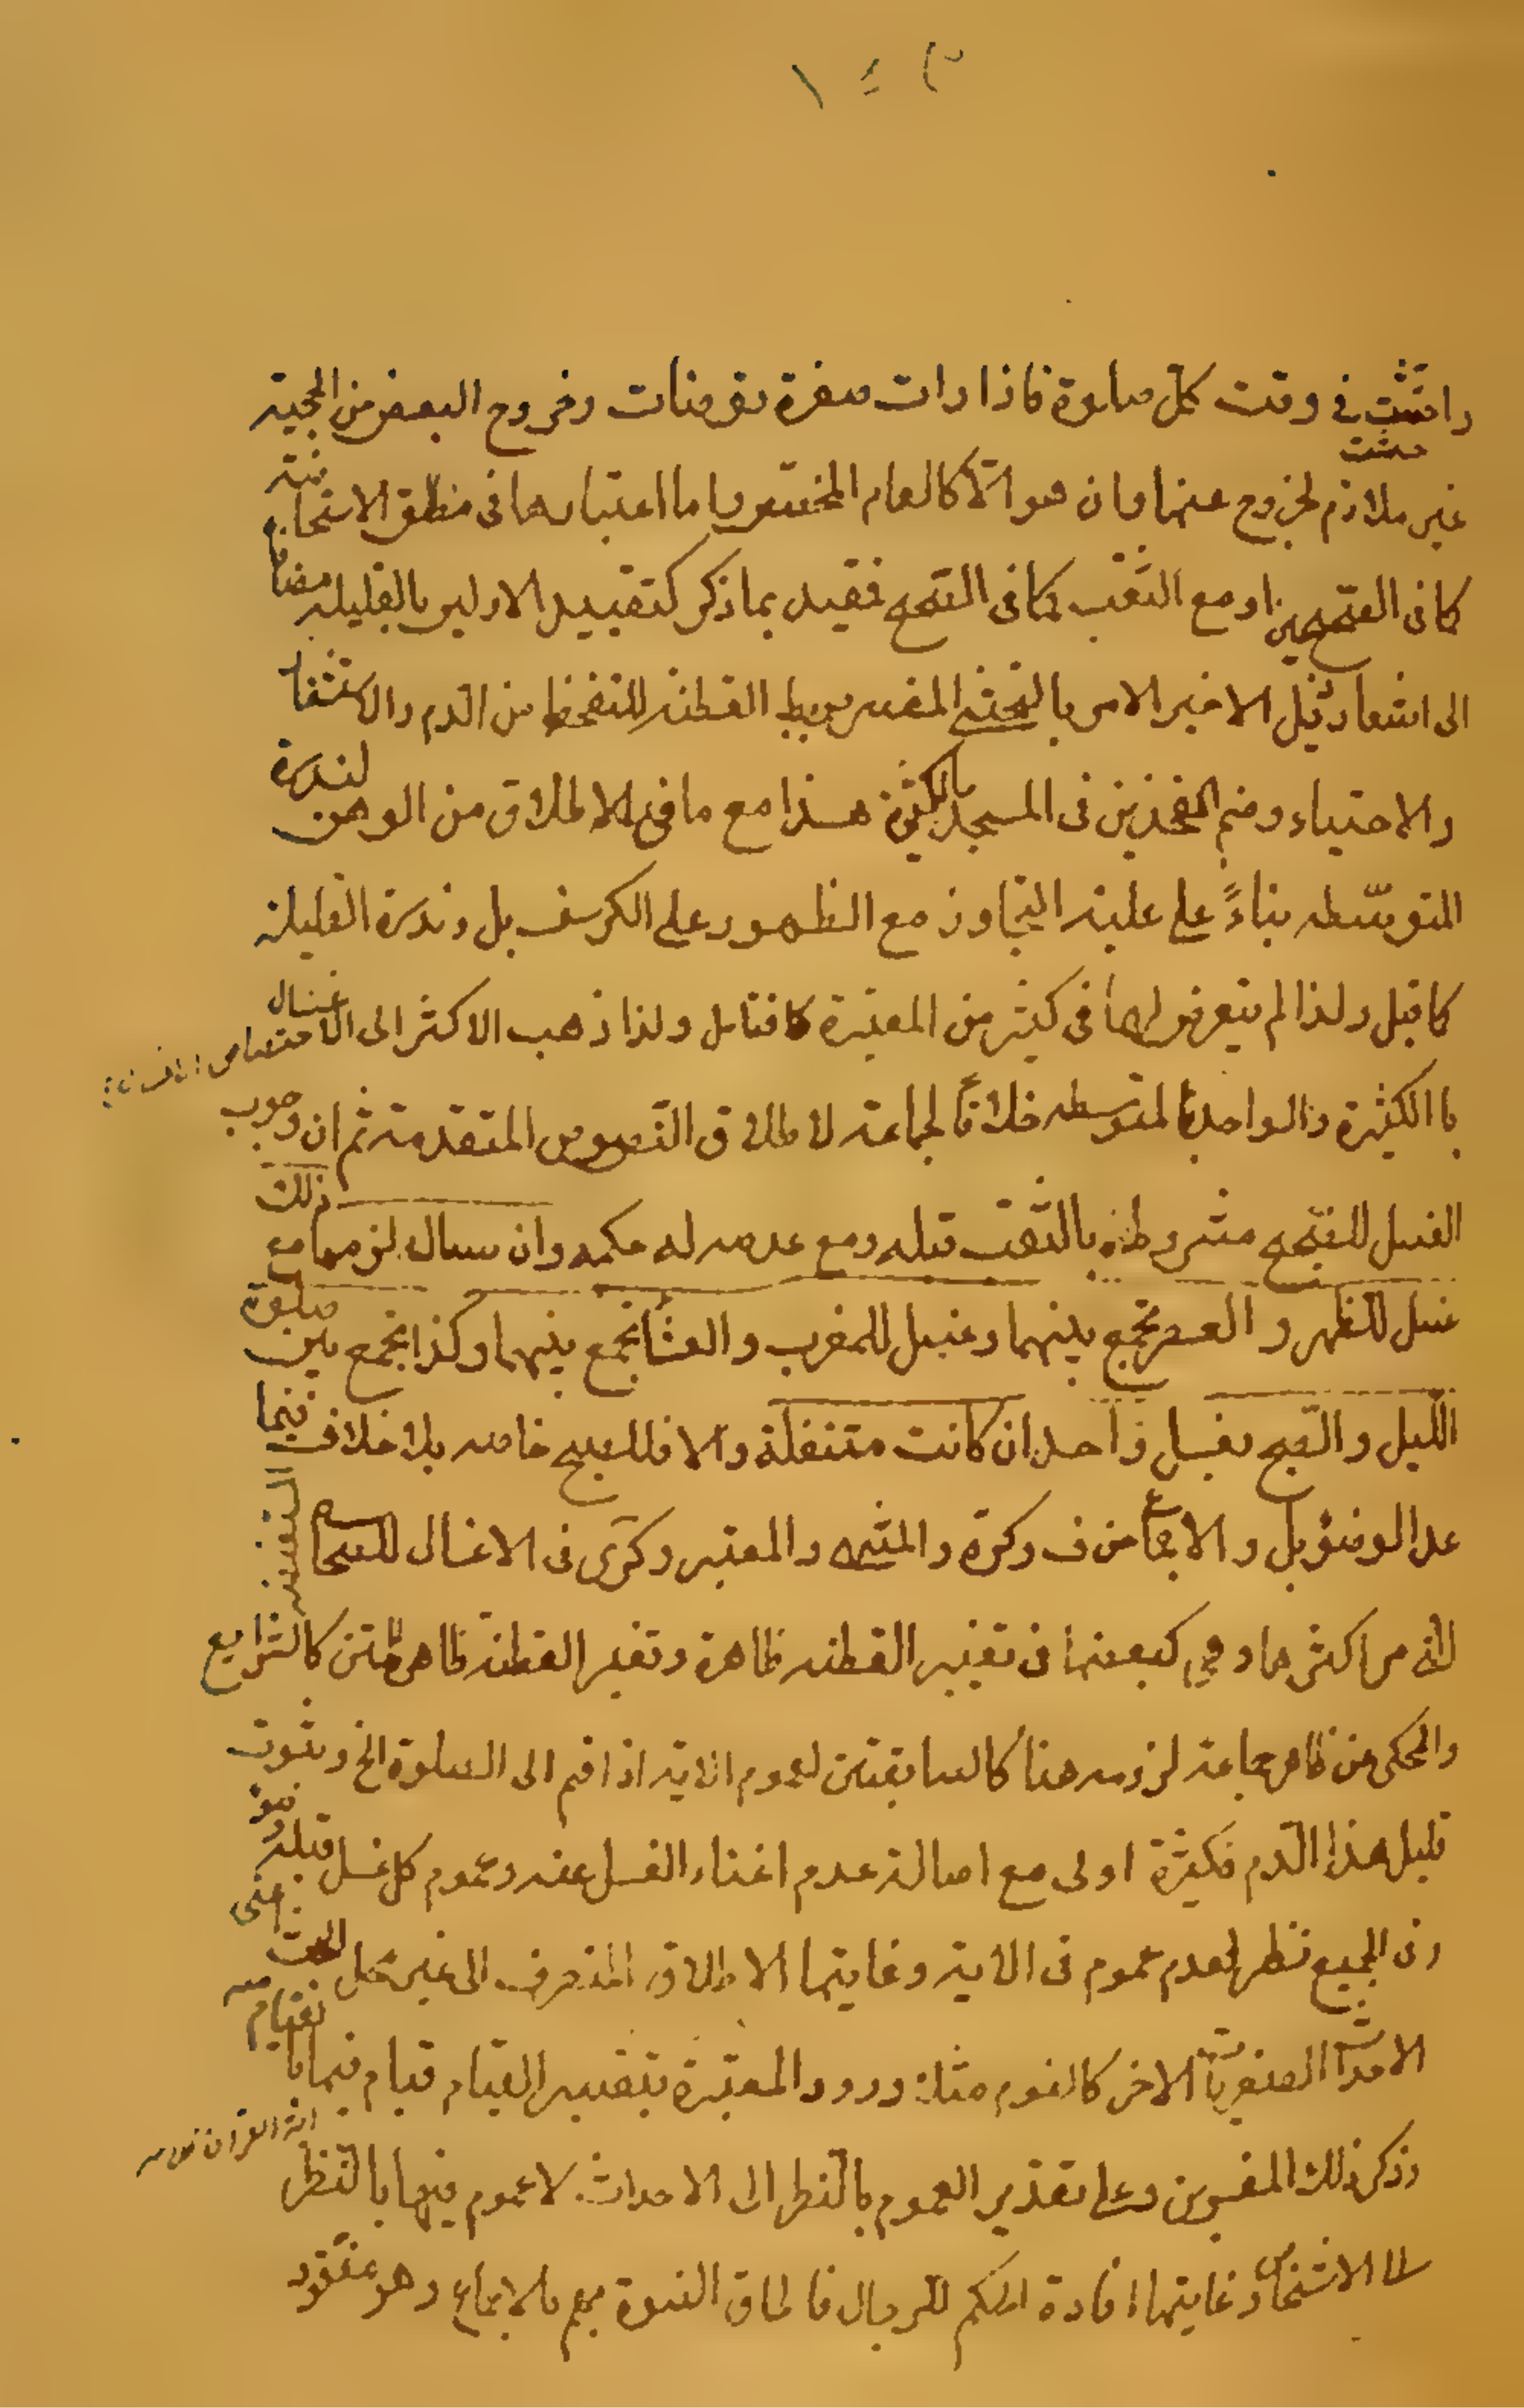 ١٤٣
واحتشت في وقت كل صلوة فاذا رات صفرة توضات وخروج البعض من الحجية
غير ملازم لخروج عنها وان هو الا كالعام المخصص واما اعتبارها في مطلق الاستحاضة
كما في الصحيحين او مع الثقب كما في الصحيح فمقيد بما ذكر كتقييد الاولين بالقليلة مضافا
الى اشعار ذيل الاخير الامر بالمفسر بربط القطنة للتحفظ من الدم والاستثفار
والاحتباء وضم الفخذين في المسجد بالكثيرة هذا مع ما في الاطلاق من الوهن لندرة
المتوسطه بناءً على غلبة التجاوز مع الظهور على الكرسف بل وندرة القليلة
كما قيل ولذا لم يتعرض لها في كثير من المعتبرة كا فتامل ولذا ذهب الاكثر الى اختصاص الاغسال
باالكثيرة والواحد بالمتوسطه خلافا لجماعة لاطلاق النصوص المتقدمة ثم ان وجوب
الغسل للصبح مشروطة بالثقب قبله ومع عدمه له حكمه وان سال لزمها مع ذلك
غسل للظهر والعصر تجمع بينهما وغسل للمغرب والعشا تجمع بينهما وكذا تجمع بين صلوة
الليل والصبح بغسل واحد ان كانت متنفلة والا فللصبح خاصه بلا خلاف فيما
عدا الوضو بل والاجماع من ف وكرة والمنتهى والمعتبر وكرى في الاغسال للصحاح المستفيضة
التي مر اكثرها وهي كبعضها في تغيير القطنه ظاهرة وتغير القطنة ظاهر المتن كالشرايع
والمحكى عن ظاهر جماعة لزومه هنا كالسابقتين لعموم الاية اذا قم الى الصلوة الخ وثبوت
قليل هذا الدم فكثيرة اولى مع اصالة عدم اغناء الغسل عنه وعموم كل غسل قبله وضوء
وفى الجميع نظر لعدم عموم فى الاية وغايتها الاطلاق المنصرف الى غير محل البحث اعنى
الاحداث الصغريات الاخر كالنوم مثلا ورود المعتبرة بتفسير القيام قيام فيها بالقيام من
وذكر ذلك المفسرين وعلى تقدير العموم بالنظر الى الاحداث لا عموم فيها بالنظر
الى الاشخاص وغايتها افادة الحكم للرجال فالحاق النسوة بهم بالاجماع وهو مفقود